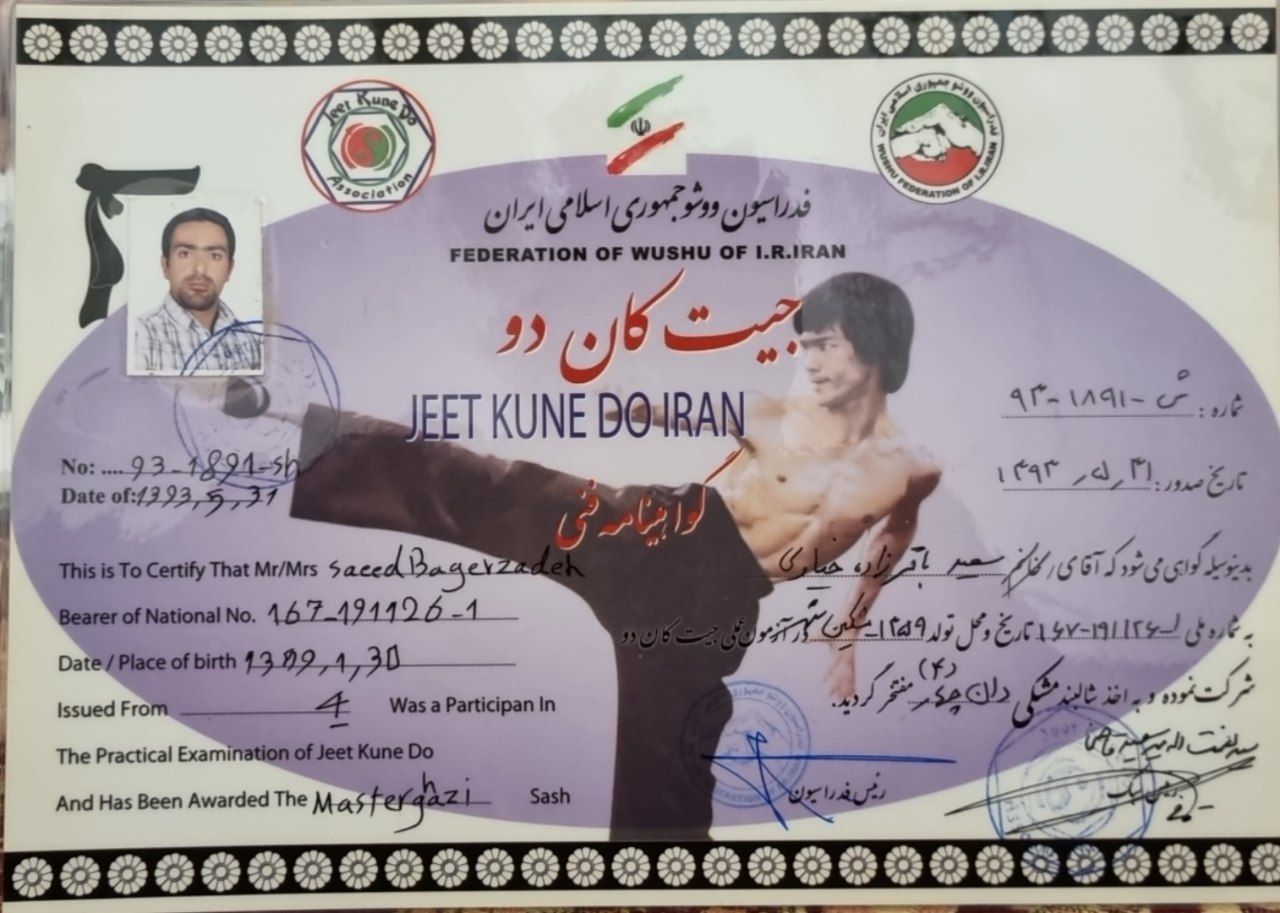 Jeet Kune Do
Association
فدراسیون ووشو جمهوری اسلامی ایران
WUSHU FEDERATION OF I.R.IRAN
فدراسیون ووشو جمهوری اسلامی ایران
FEDERATION OF WUSHU OF I.R.IRAN
جیت کان دو
JEET KUNE DO IRAN
گواهینامه فنی
شماره : ش-۱۸۹۱-۹۳
تاریخ صدور : ۱۳۹۳٫۵٫۳۱
No: .... 93-1891-sh
Date of:1393,5,31
بدینوسیله گواهی می شود که آقای / خانم سعید باقرزاده خیاری
به شماره ملی ۱-۱۹۱۱۲۶-۱۶۷ تاریخ و محل تولد ۱۳۵۹ مشکین شهر در آزمون عملی جیت کان دو
شرکت نموده و به اخذ شالبند مشکی دان چهار (۴) مفتخر گردید.
This is To Certify That Mr/Mrs saeed Bagerzadeh
Bearer of National No. 167-191126-1
Date / Place of birth 1389,1,30
Issued From 4 Was a Participan In
The Practical Examination of Jeet Kune Do
And Has Been Awarded The Masterghazi Sash
رئیس فدراسیون
رئیس سبک